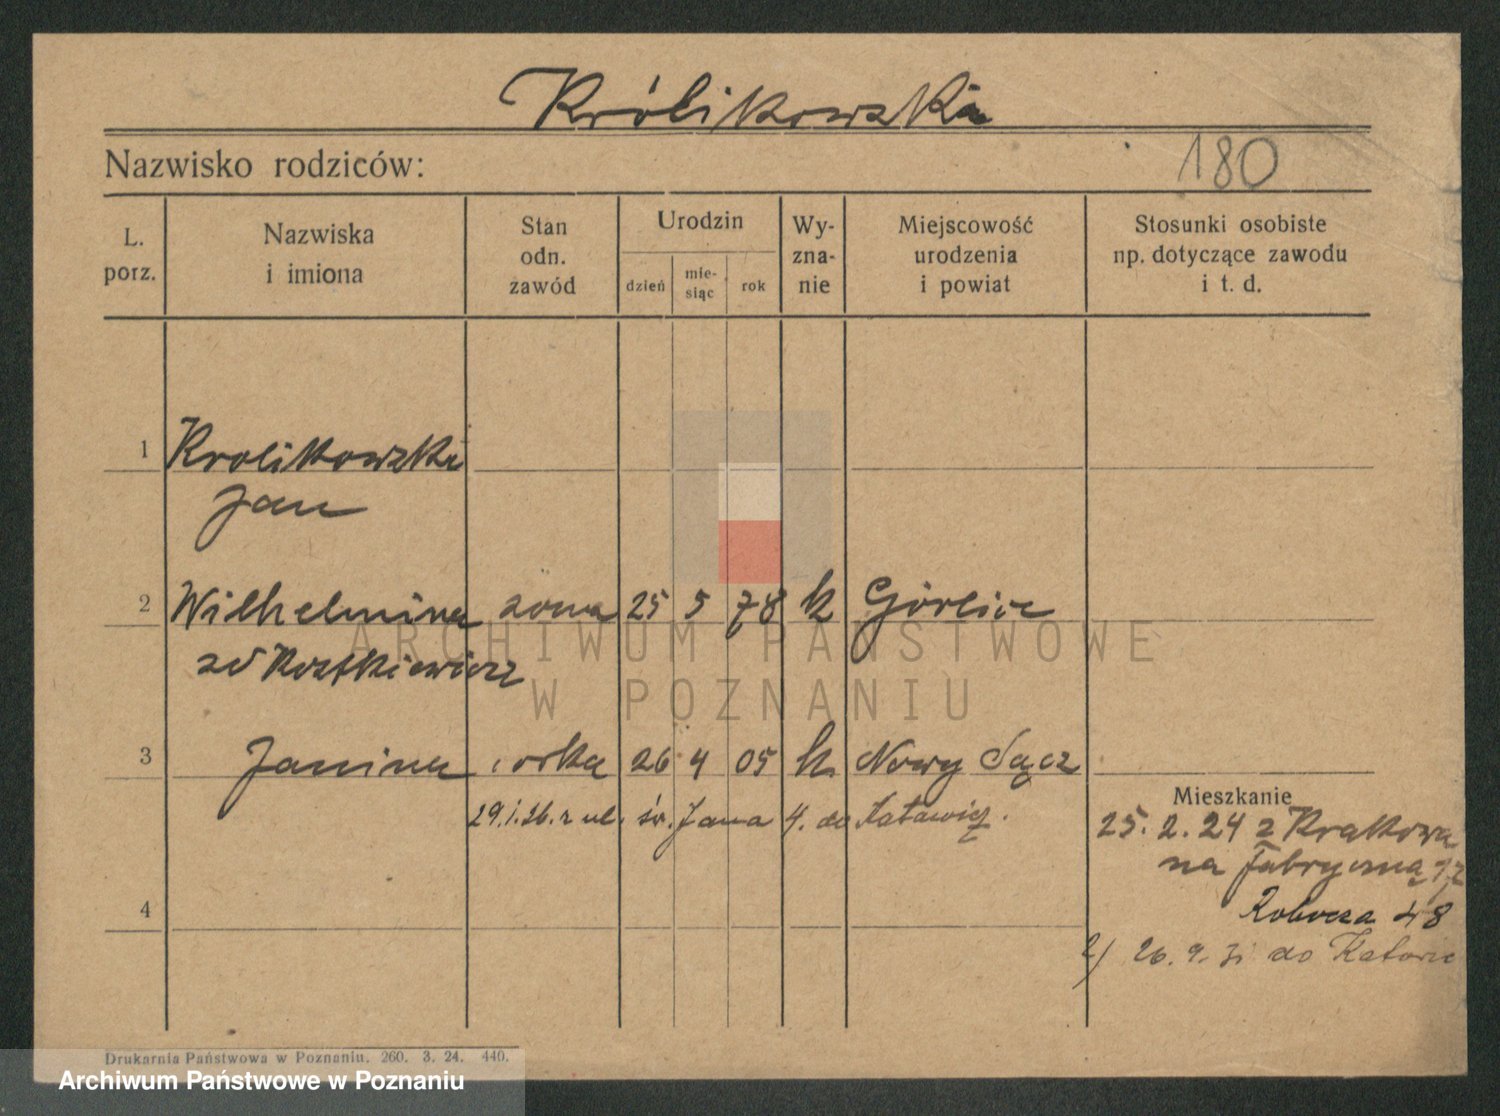 Królikowska
Nazwisko rodziców:
180
L. porz.
Nazwiska i imiona
Stan odn. zawód
Urodzin
dzień
mie- siąc
rok
Wy- zna- nie
Miejscowość urodzenia i powiat
Stosunki osobiste np. dotyczące zawodu i t. d.
1 Krolikowski
Jan
2 Wilhelmina zona 25 5 78 k Gorlice
zd Kostkiewicz
3 Janina corka 26 4 05 k. Nowy Sącz
29.1.26. z ul. św. Jana 4. do Katowic.
Mieszkanie
25. 2. 24 z Krakowa
na Fabryczną 17
Robocza 48
2/ 26. 9. 31 do Katowic
4
ARCHIWUM PAŃSTWOWE
W POZNANIU
Drukarnia Państwowa w Poznaniu. 260. 3. 24. 440.
Archiwum Państwowe w Poznaniu